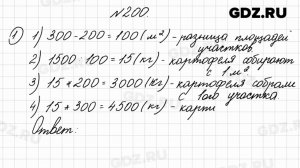 GDZ.RU
№200.
1) 1) 300-200=100 (м²) - разница площадей
участков
2) 1500:100=15 (кг) - картофеля собирают
с 1 м²
3) 15*200=3000 (кг) - картофеля собрали
с 1ого участка
4) 15*300=4500 (кг) - карти
Ответ:
GDZ.RU